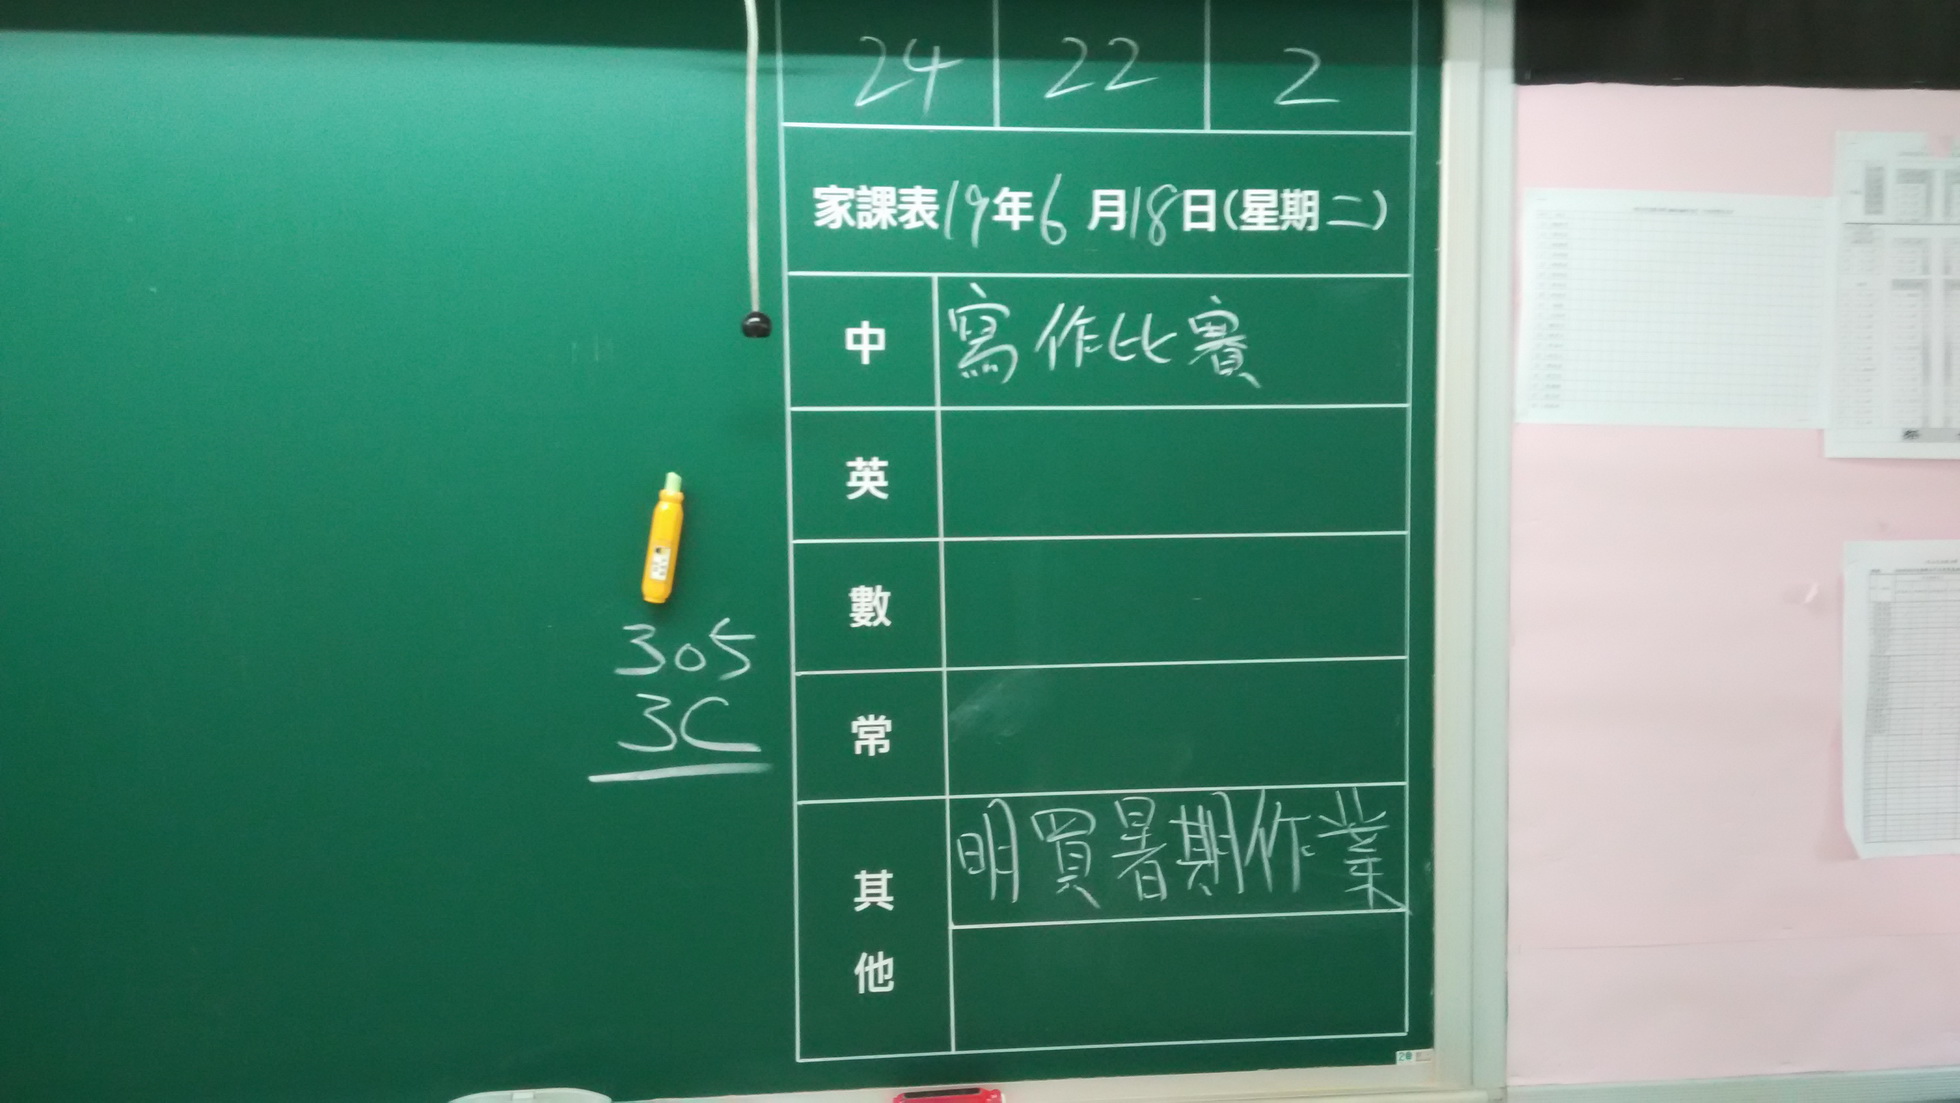 24 22 2
家課表19年6月18日(星期二)
中 寫作比賽
英
數
常
其他 明買暑期作業
305
3C